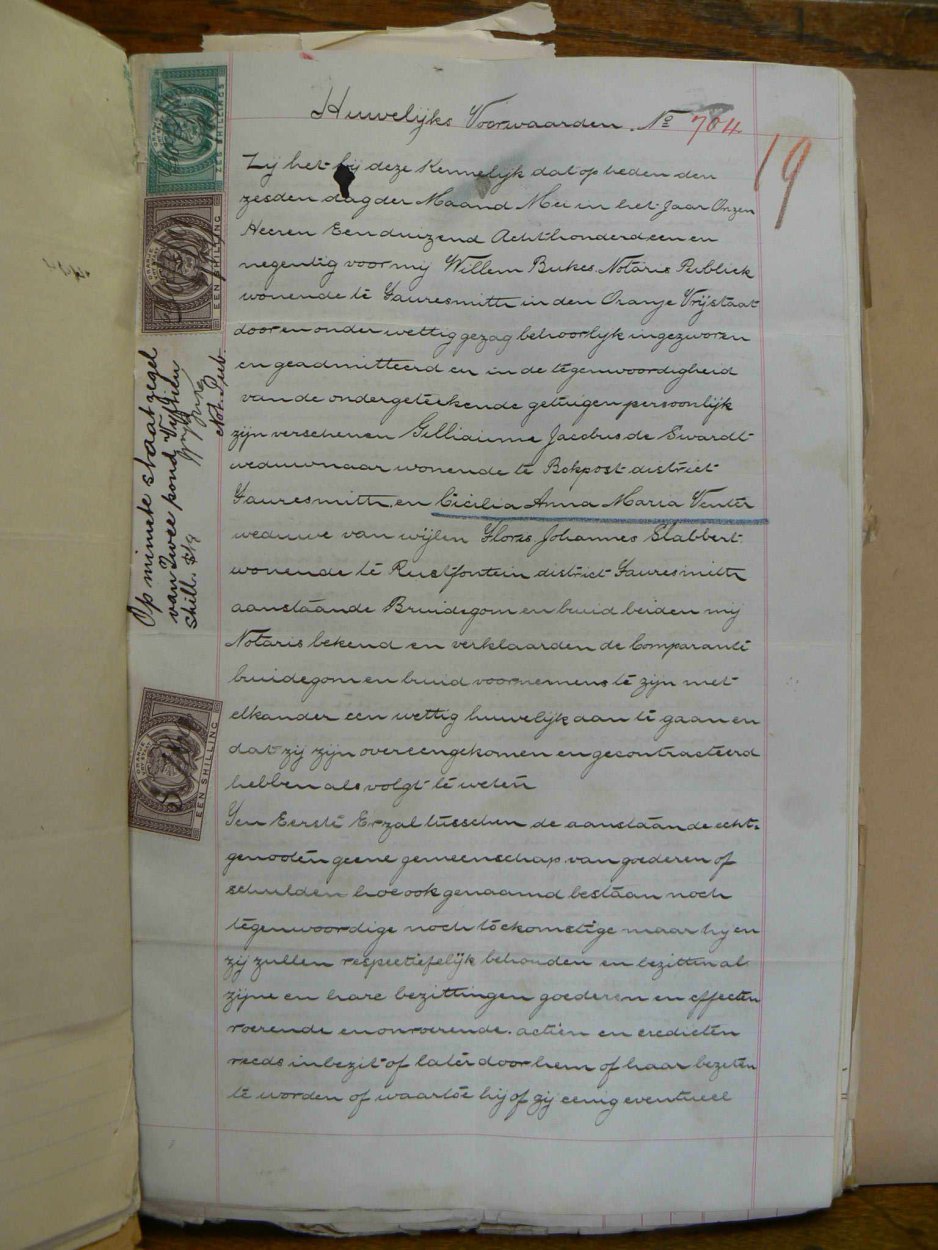 Huwelijks Voorwaarden. No 704.
19
Zij het bij deze Kennelijk dat op heden den
zesden dag der Maand Mei in het Jaar Onzen
Heeren Eenduizend Achthonderd een en
negentig voor mij Willem Bukes Notaris Publiek
wonende te Fauresmith in den Oranje Vrijstaat
door en onder wettig gezag behoorlijk ingezworen
en geadmitteerd en in de tegenwoordigheid
van de ondergeteekende getuigen persoonlijk
zijn verschenen Gilliaume Jacobus de Swardt
weduwnaar wonende te Bokpost district
Fauresmith, en Cicilia Anna Maria Venter
weduwe van wijlen Floris Johannes Slabbert
wonende te Rustfontein district Fauresmith
aanstaande Bruidegom en bruid beiden mij
Notaris bekend en verklaarden de Comparante
buidegom en buid voornemens te zijn met
elkander een wettig huwelijk aan te gaan en
dat zij zijn overeengekomen en gecontracteerd
hebben als volgt te weten
Ten Eerste Er zal tusschen de aanstaande echt-
genooten geene gemeenschap van goederen of
schulden hoe ook genaamd bestaan noch
tegenwoordige noch toekomstige maar hij en
zij zullen respectiefelijk behouden en bezitten al
zijne en hare bezittingen goederen en effecten
roerende en onroerende. actiën en credieten
reeds in bezit of later door hem of haar bezeten
te worden of waartoe hij of zij eenig eventueel
Op minute staat zegel
van Twee pond Vijftien
Shill.
Not. Pub.
ZES SHILLINGS
EEN SHILLING
EEN SHILLING